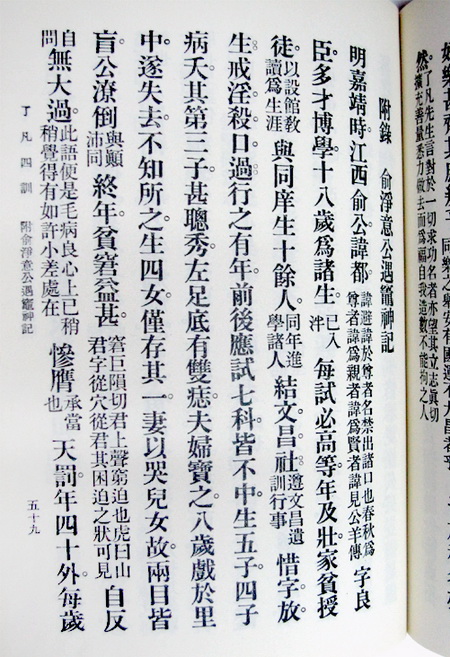 然。了凡先生言對於一切求功名者亦望其立志真切擴充善量悉力做去而爲福自我造數不能拘之人
附錄 俞淨意公遇竈神記
明嘉靖時。江西俞公諱都。諱避諱於尊者名禁出諸口也春秋爲尊者諱爲親者諱爲賢者諱見公羊傳 字良
臣。多才博學。十八歲爲諸生。已入泮 每試必高等。年及壯。家貧授
徒。以設館教讀爲生涯 與同庠生十餘人。同年進學諸人 結文昌社。遵文昌遺訓行事 惜字放
生。戒淫殺口過。行之有年。前後應試七科。皆不中。生五子。四子
病夭。其第三子。甚聰秀。左足底有雙痣。夫婦寶之。八歲戲於里
中。遂失去。不知所之。生四女。僅存其一。妻以哭兒女故。兩目皆
盲。公潦倒與顛沛同 終年。貧窘益甚。窘巨隕切君上聲窮迫也虎曰山君字從穴從君其困迫之狀可見 自反
自問 無大過。此語便是毛病良心上已稍稍覺得有如許小差處在 慘膺承當也 天罰。年四十外。每歲
了凡四訓 附俞淨意公遇竈神記 五十九